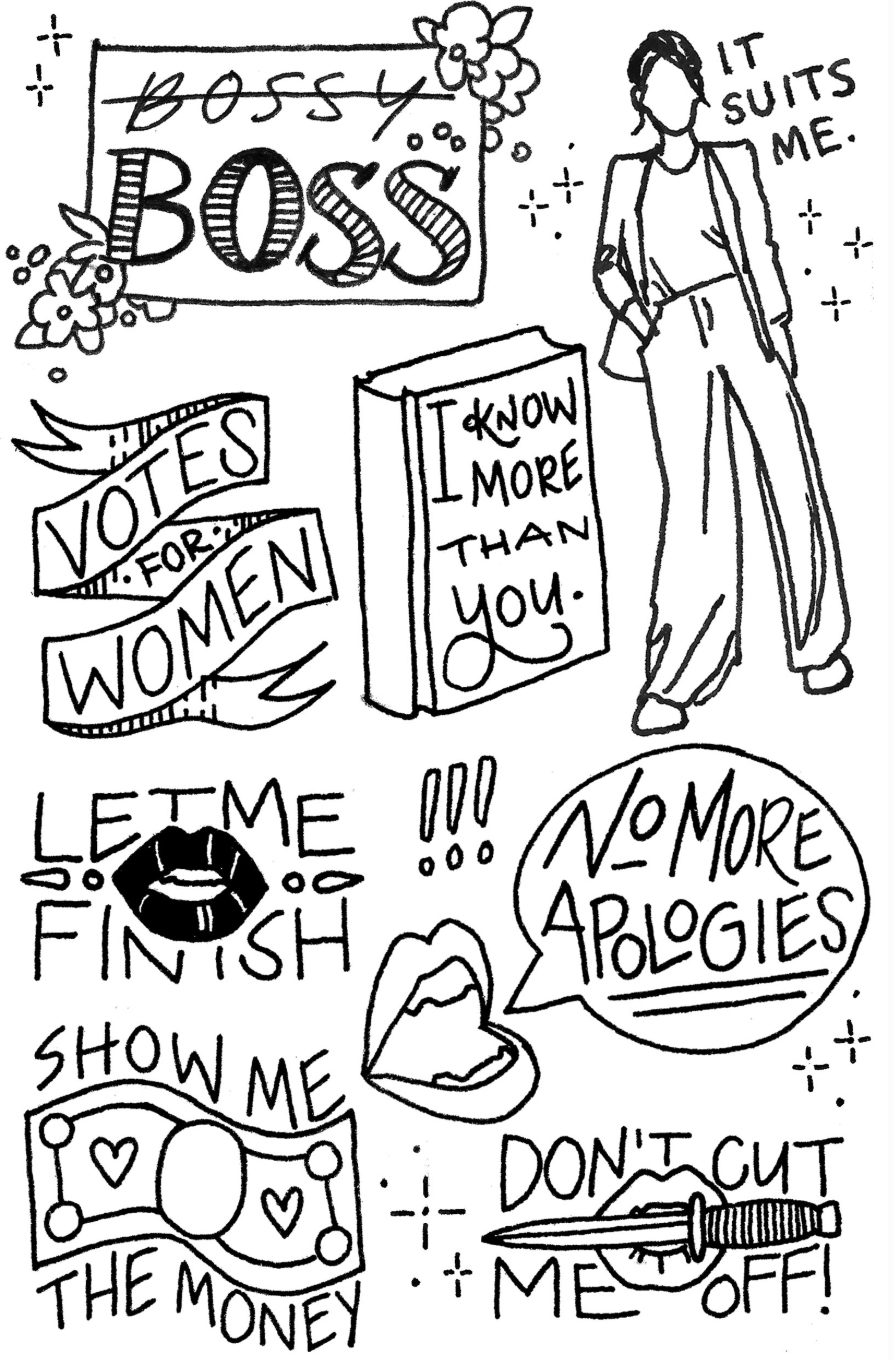 BOSSY
BOSS
IT
SUITS
ME.
VOTES
·FOR·
WOMEN
I KNOW
MORE
THAN
YOU.
LET ME
FINISH
!!!
NO MORE
APOLOGIES
SHOW ME
THE MONEY
DON'T CUT
ME OFF!